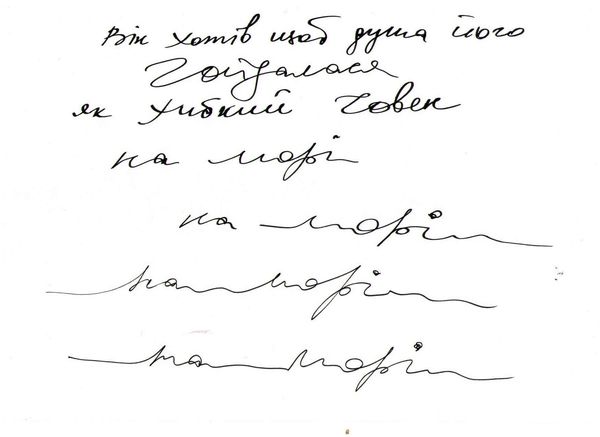 Він хотів щоб душа його
гойдалася
як хибкий човен
на морі
на морі
на морі
на морі